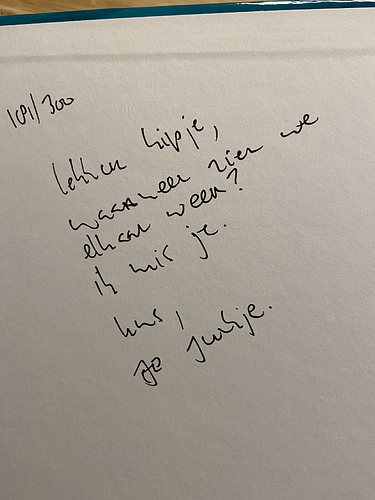 101/300
lekker kipje,
waarneer zien we
elkaar weer?
ik mis je.
kus,
Je Juukje.